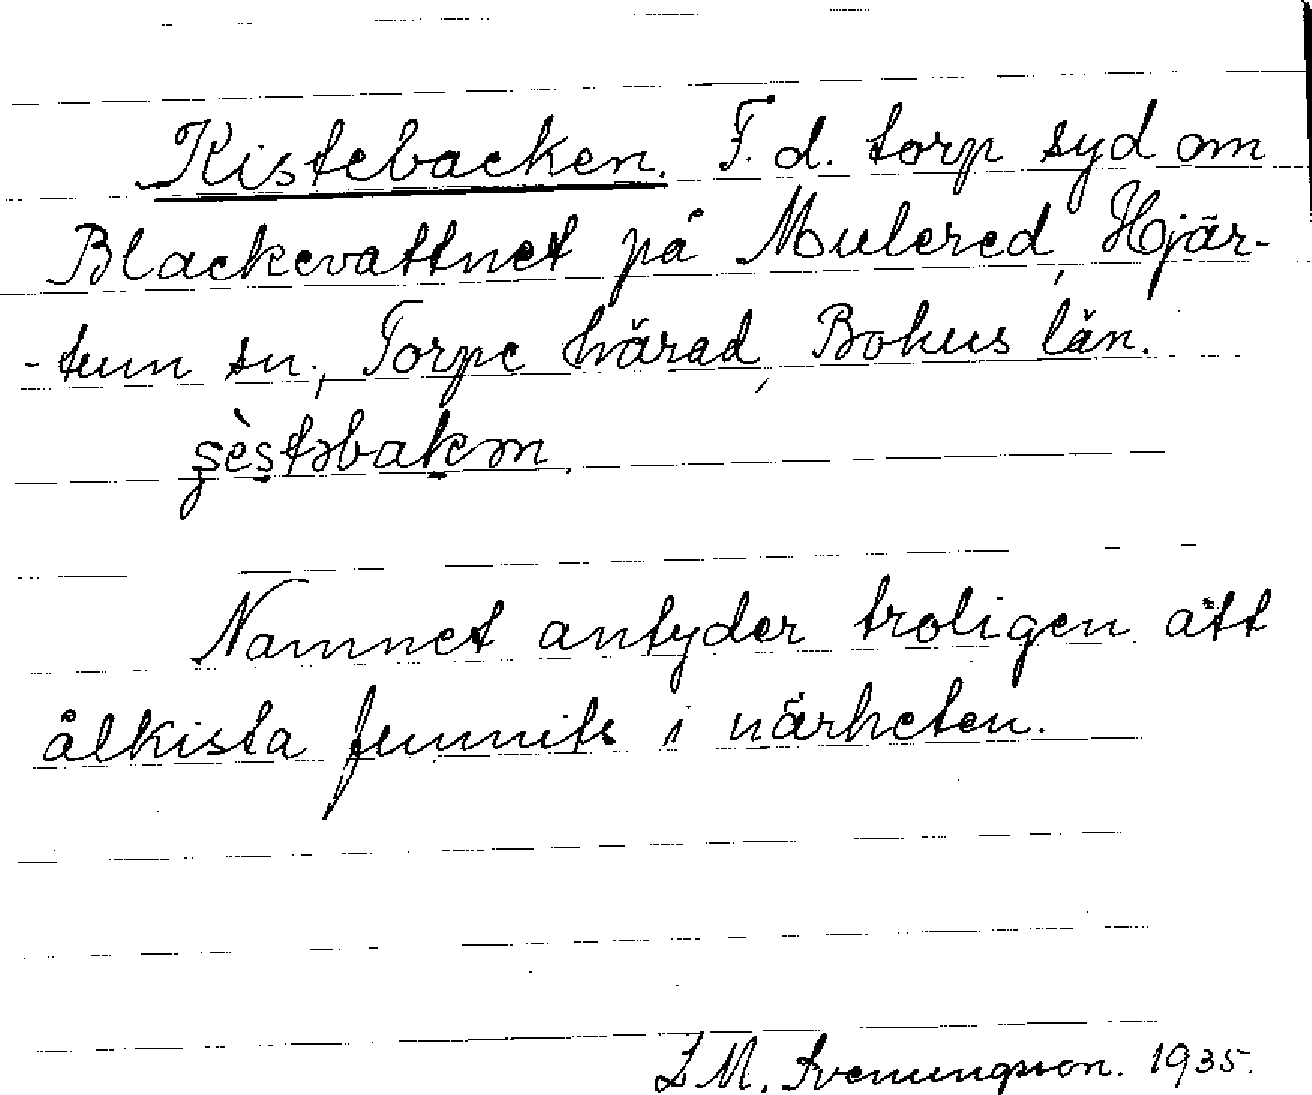 Kistebacken. F. d. torp syd om
Blackevattnet på Mulered, Hjär-
-tum sn., Torpe härad, Bohus län.
şès̩təbakən.
Namnet antyder troligen att
ålkista funnits i närheten.
L M. Svenungsson. 1935.